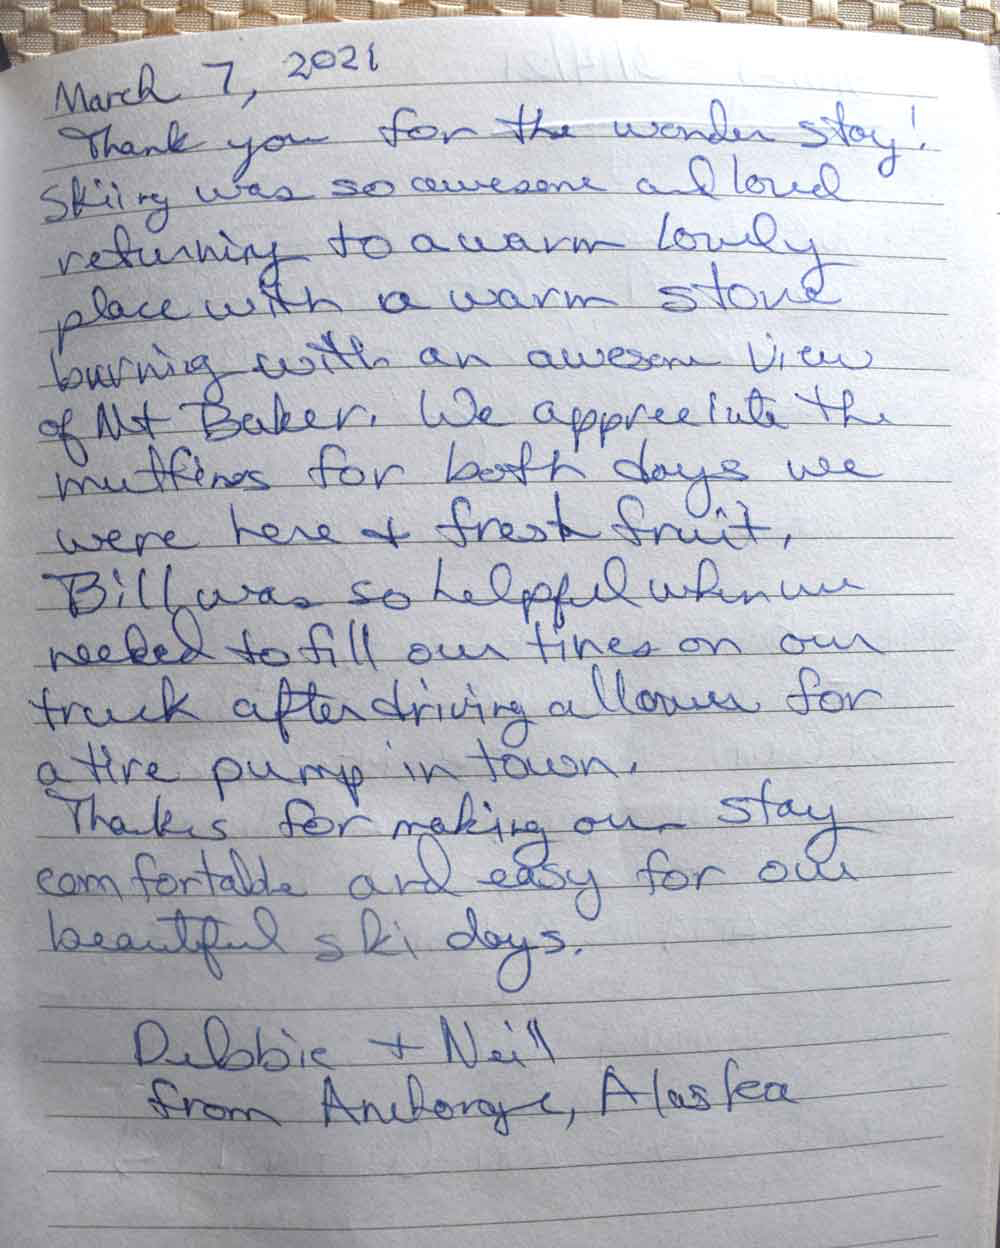 March 7, 2021
Thank you for the wonder stay!
Skiing was so awesome and loved
returning to a warm lovely
place with a warm stove
burning with an awesome view
of Mt Baker. We appreciate the
muffins for both days we
were here + fresh fruit.
Bill was so helpful when we
needed to fill our tires on our
truck after driving all over for
a tire pump in town.
Thanks for making our stay
comfortable and easy for our
beautiful ski days.
Debbie + Neill
from Anchorage, Alaska